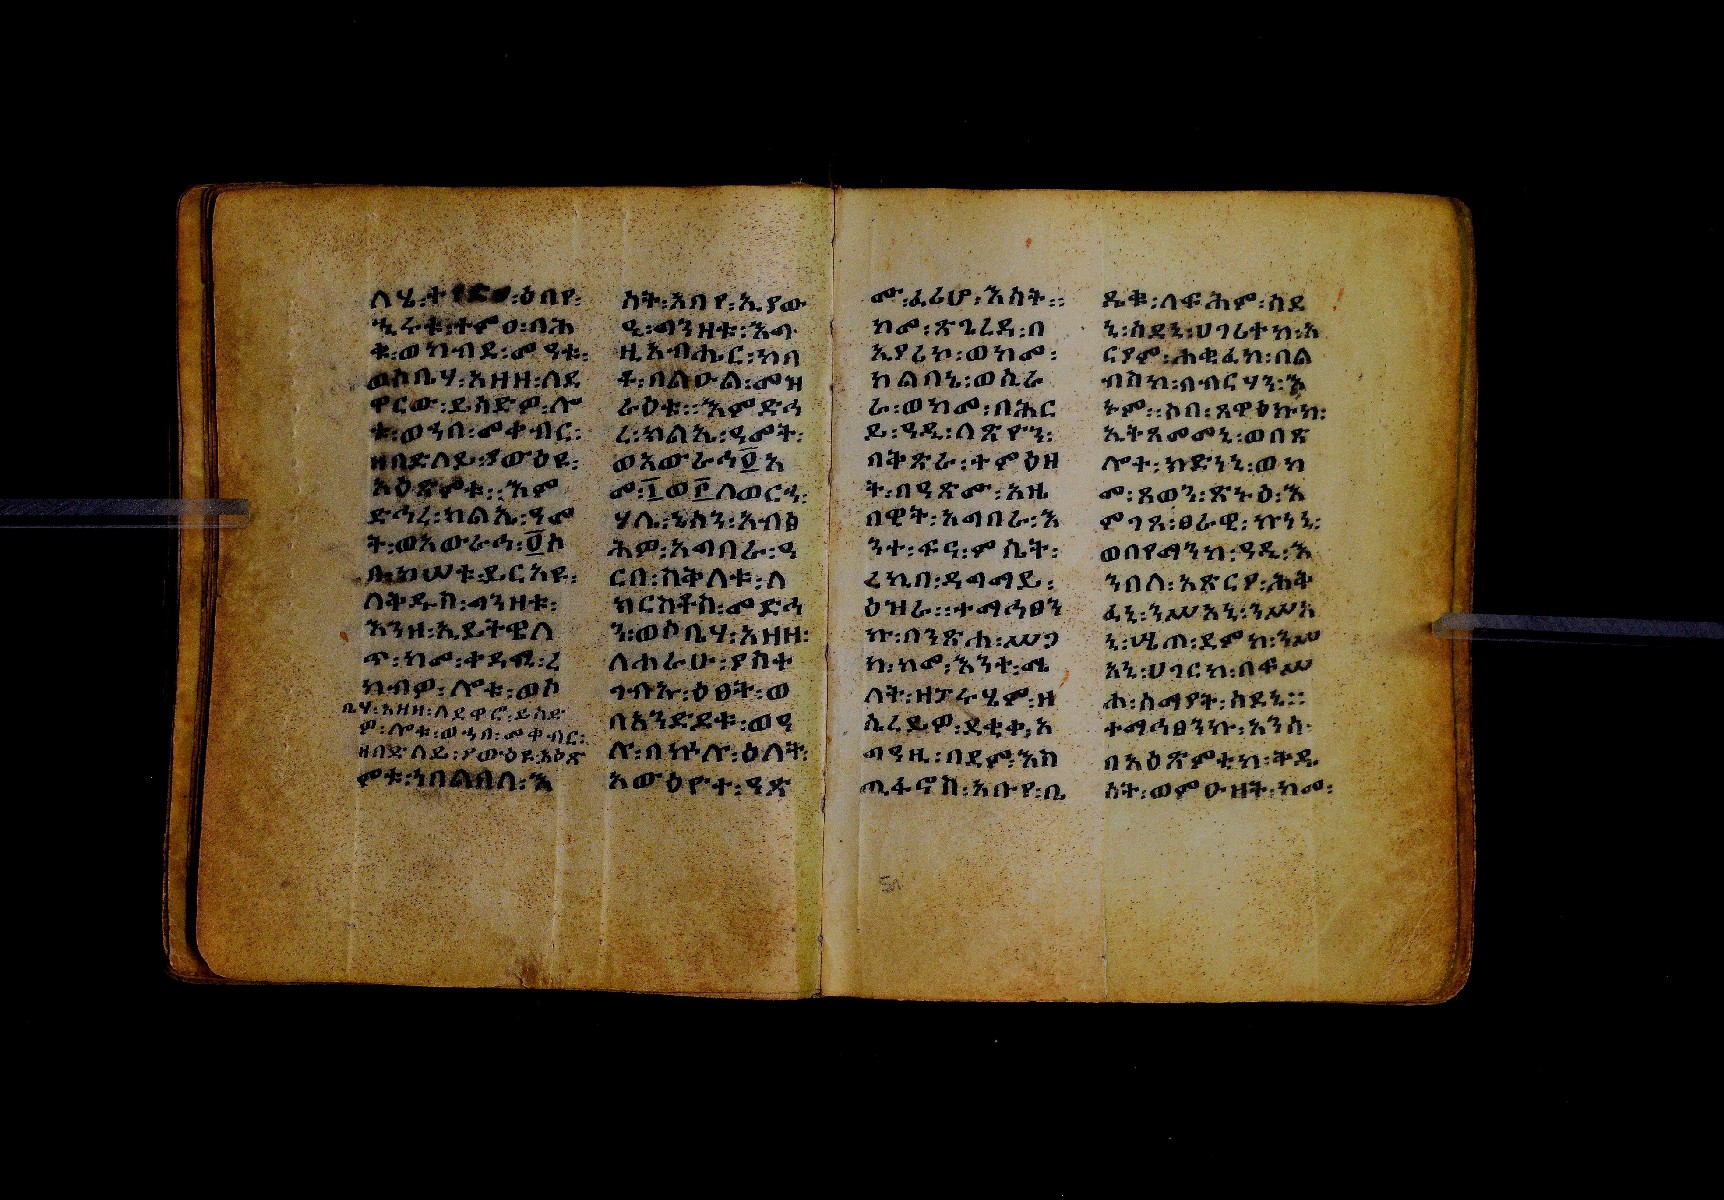 ዕበየ፡
ኂሩቱ፡ተምዐ፡በሕ
ቱ፡ወከብደ፡መዓቱ፡
ወሶቤሃ፡አዘዘ፡ለደ
ዋርው፡ይእድዎ፡ሎ
ቱ፡ወኀበ፡መቀብር፡
ዘበድለይ፡ያውዕዩ፡
አዕጽምቱ፡፡እም
ድኅረ፡ክልኤ፡ዓመ
ት፡ወአውራኅ፡፬ሶ
ቤ፡ከሠቱ፡ይርአዩ፡
ለቅዱስ፡ጣንዘቱ፡
እንዘ፡ኢይትዌለ
ጥ፡ከመ፡ቀዳሚ፡ረ
ከብዎ፡ሎቱ፡ወሶ
ቤሃ፡አዘዘ፡ለደዋሮ፡ይእድ
ዎ፡ሎቱ፡ወኀበ፡መቀብር፡
ዘበድለይ፡ያውዕዩ፡አዕጽ
ምቱ፡ነበልባለ፡እ
ሳት፡አበየ፡ኢያው
ዒ፡ጣንዘቱ፡እግ
ዚአብሔር፡ከበ
ቶ፡በልዑል፡መዝ
ራዕቱ፡፡እምድኅ
ረ፡ክልኤ፡ዓመት፡
ወአውራኅ፬አ
መ፡፲ወ፫ለወርኃ፡
ሃሌ፡ኔሰን፡አብፅ
ሕዎ፡አግበራ፡ዓ
ርበ፡ስቅለቱ፡ለ
ክርስቶስ፡መድኅ
ን፡ወሶቤሃ፡አዘዘ፡
ለሐራሁ፡ያስተ
ጋብኡ፡ዕፀት፡ወ
በአንድደቱ፡ወዓ
ሉ፡በኵሉ፡ዕለት፡
አውዕዮተ፡ዓጽ
ሙ፡ፈሪሆ፡እሳት፡፡
ከመ፡ጽጌረዳ፡በ
ኢያሪኮ፡ወከመ፡
ከልበኔ፡ወሲራ
ራ፡ወከመ፡በሕር
ይ፡ዓዲ፡ለጽዮን፡
በትጽራ፡ተምዕዘ
ት፡በዓጽሙ፡አዜ
በዊት፡አግበራ፡እ
ንተ፡ፍና፡ምሴት፡
ረኪበ፡ዳግማይ፡
ዕዝራ፡፡ተማኅፀን
ኩ፡በንጽሐ፡ሥጋ
ከ፡ከመ፡እንተ፡ጫ
ሌት፡ዘፓራሂም፡ዘ
ሲረይዎ፡ደቂቀ፡አ
ግዓዚ፡በደም፡እስ
ጢፋኖስ፡አቡየ፡ቤ
ዴቁ፡ለፍሕም፡ስደ
ኒ፡ስደኒ፡ሀገሪተከ፡አ
ርያም፡ሕቂፈከ፡በል
ብስከ፡በብርሃን፡እ
ኑም፡፡ሶበ፡ጸዋዕኩከ፡
ኢትጸመመኒ፡ወበጽ
ሎተ፡ክድነኒ፡ወከ
መ፡ጸወን፡ጽኑዕ፡እ
ምገጸ፡ፀራዊ፡ኩነኒ፡
ወበየማንከ፡ዓዲ፡እ
ንበለ፡አጽርዖ፡ሕቅ
ፈኒ፡ንሥአኒ፡ንሥአ
ኒ፡ሤጠ፡ደምከ፡ንሥ
አኒ፡ሀገርከ፡በፍሥ
ሐ፡ሰማያት፡ስደኒ፡፡
ተማኅፀንኩ፡አንሰ፡
በአዕጽምቲከ፡ቅዱ
ሳት፡ወምዑዘት፡ከመ፡